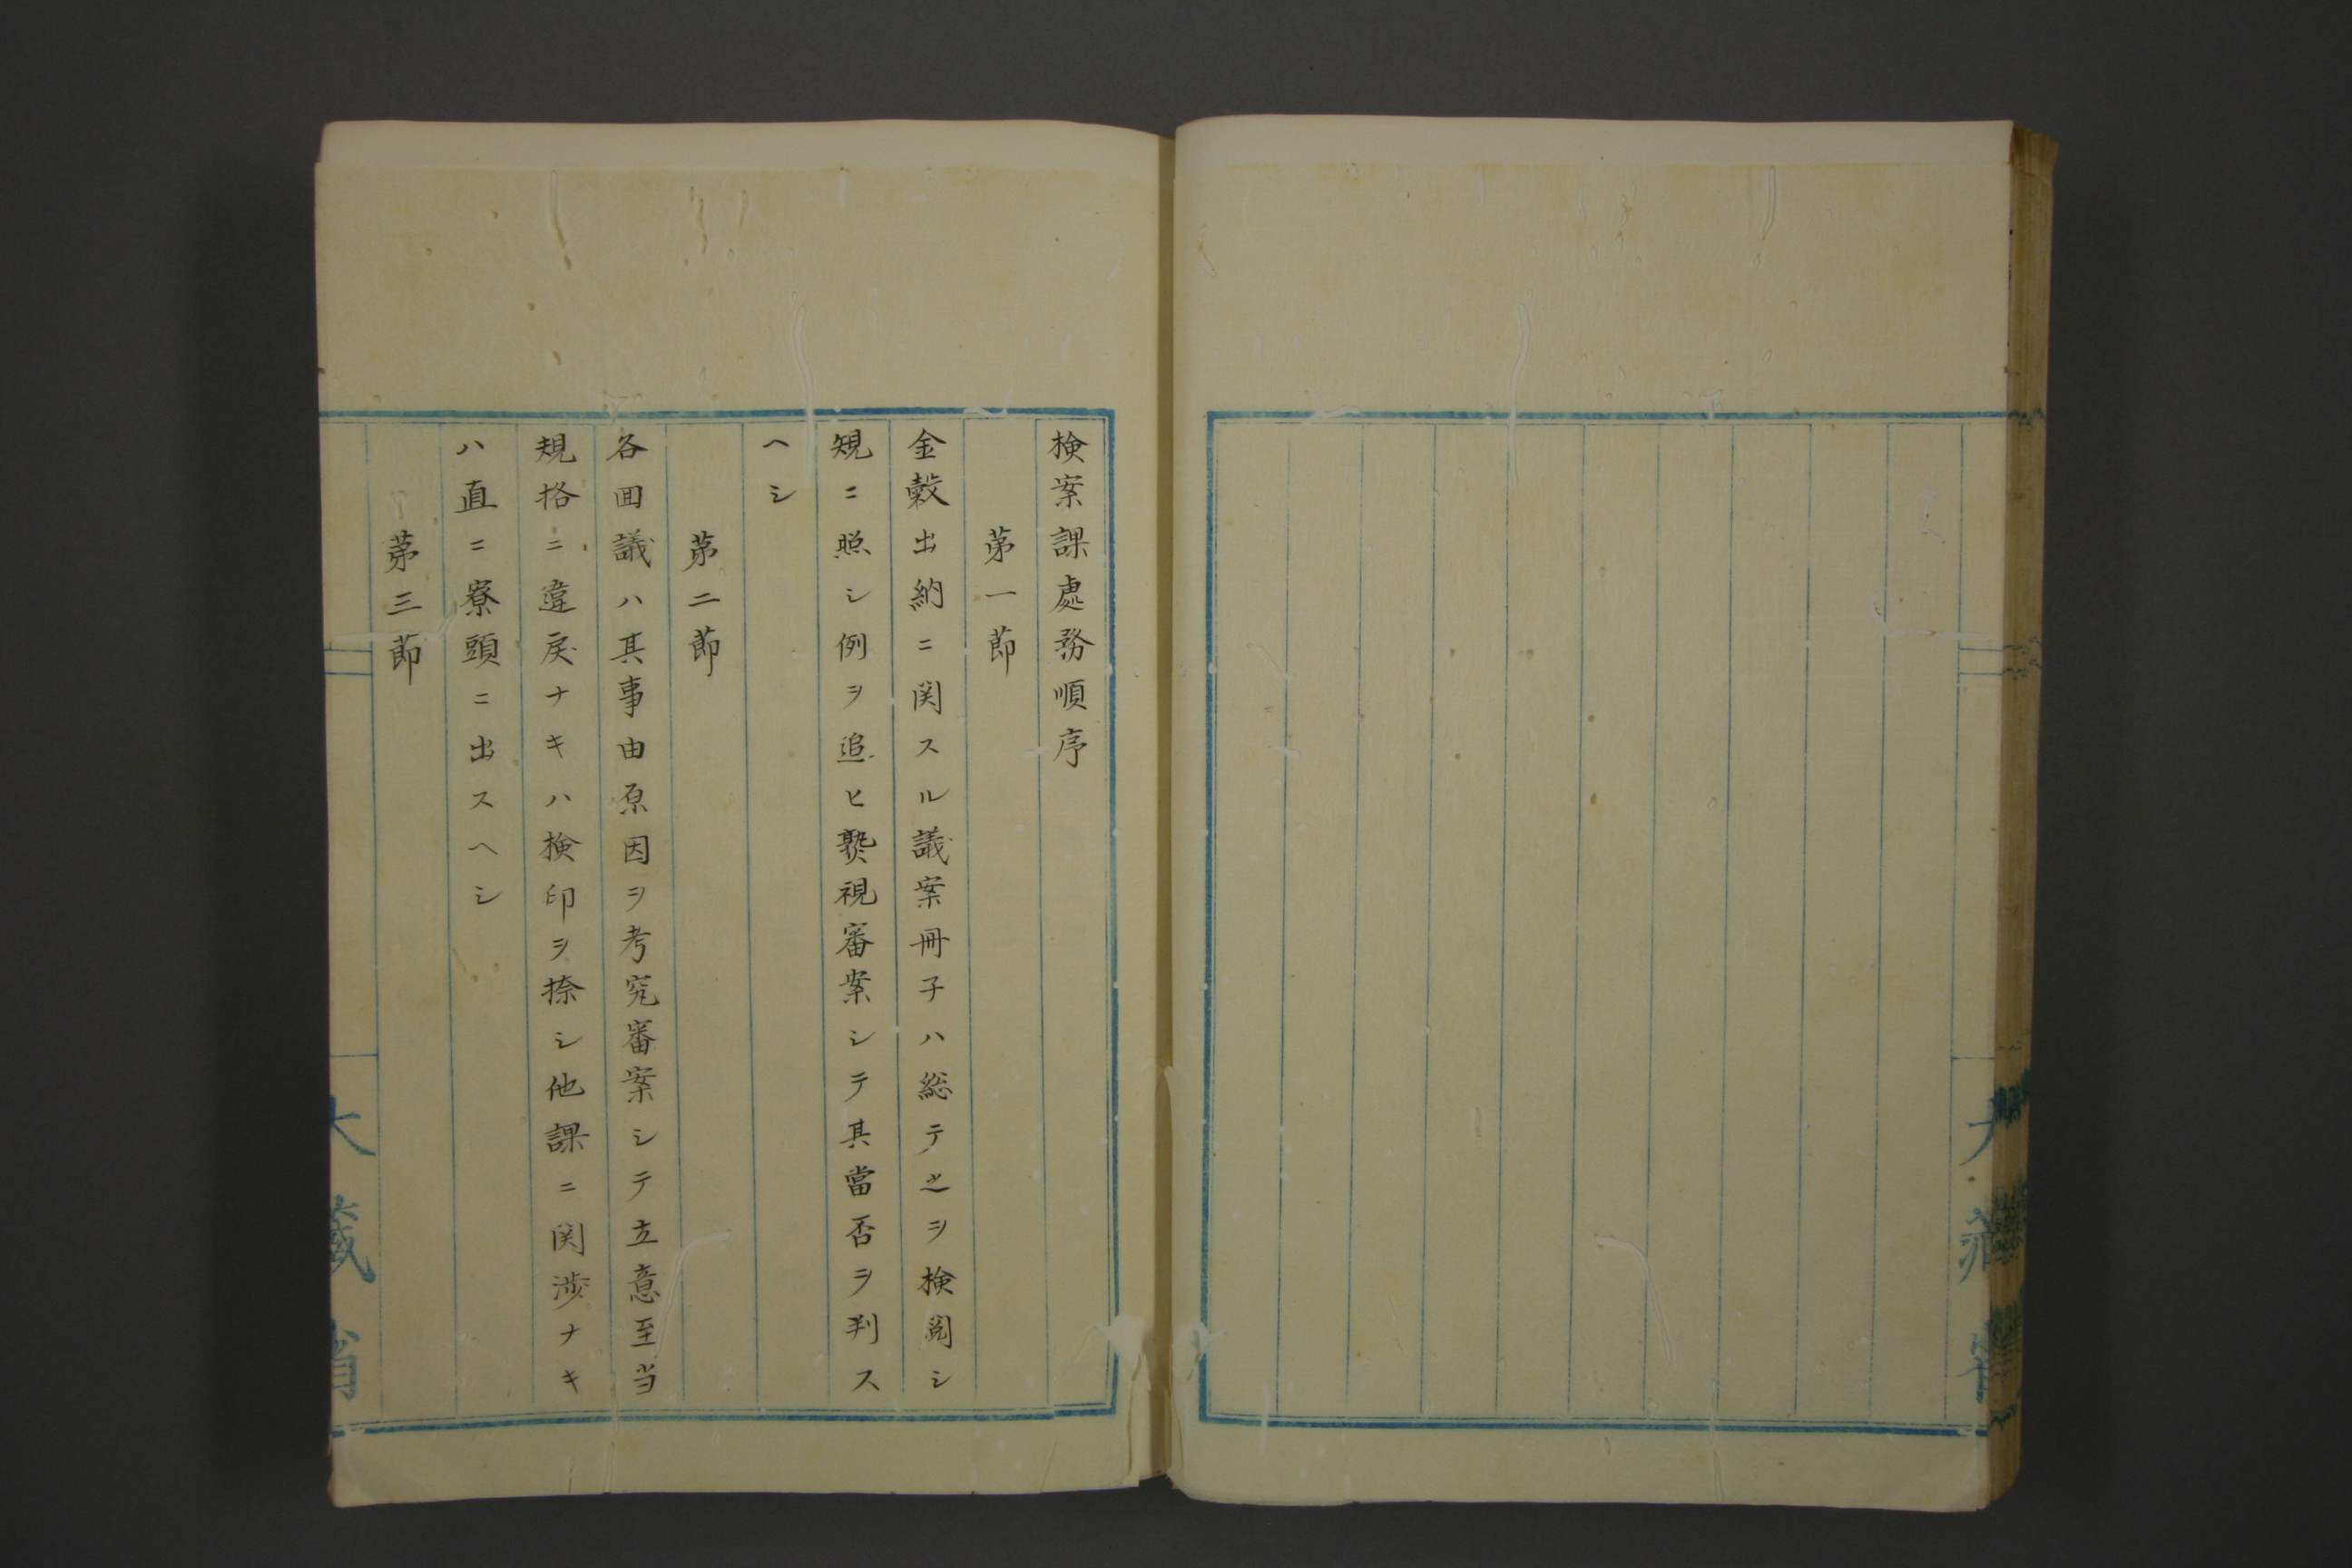 検案課處務順序
第一節
金穀出納ニ関スル議案冊子ハ総テ之ヲ検閲シ
規ニ照シ例ヲ追ヒ熟視審案シテ其當否ヲ判ス
ヘシ
第二節
各回議ハ其事由原因ヲ考究審案シテ立意至当
規格ニ違戻ナキハ検印ヲ捺シ他課ニ関渉ナキ
ハ直ニ寮頭ニ出スヘシ
第三節
大藏省